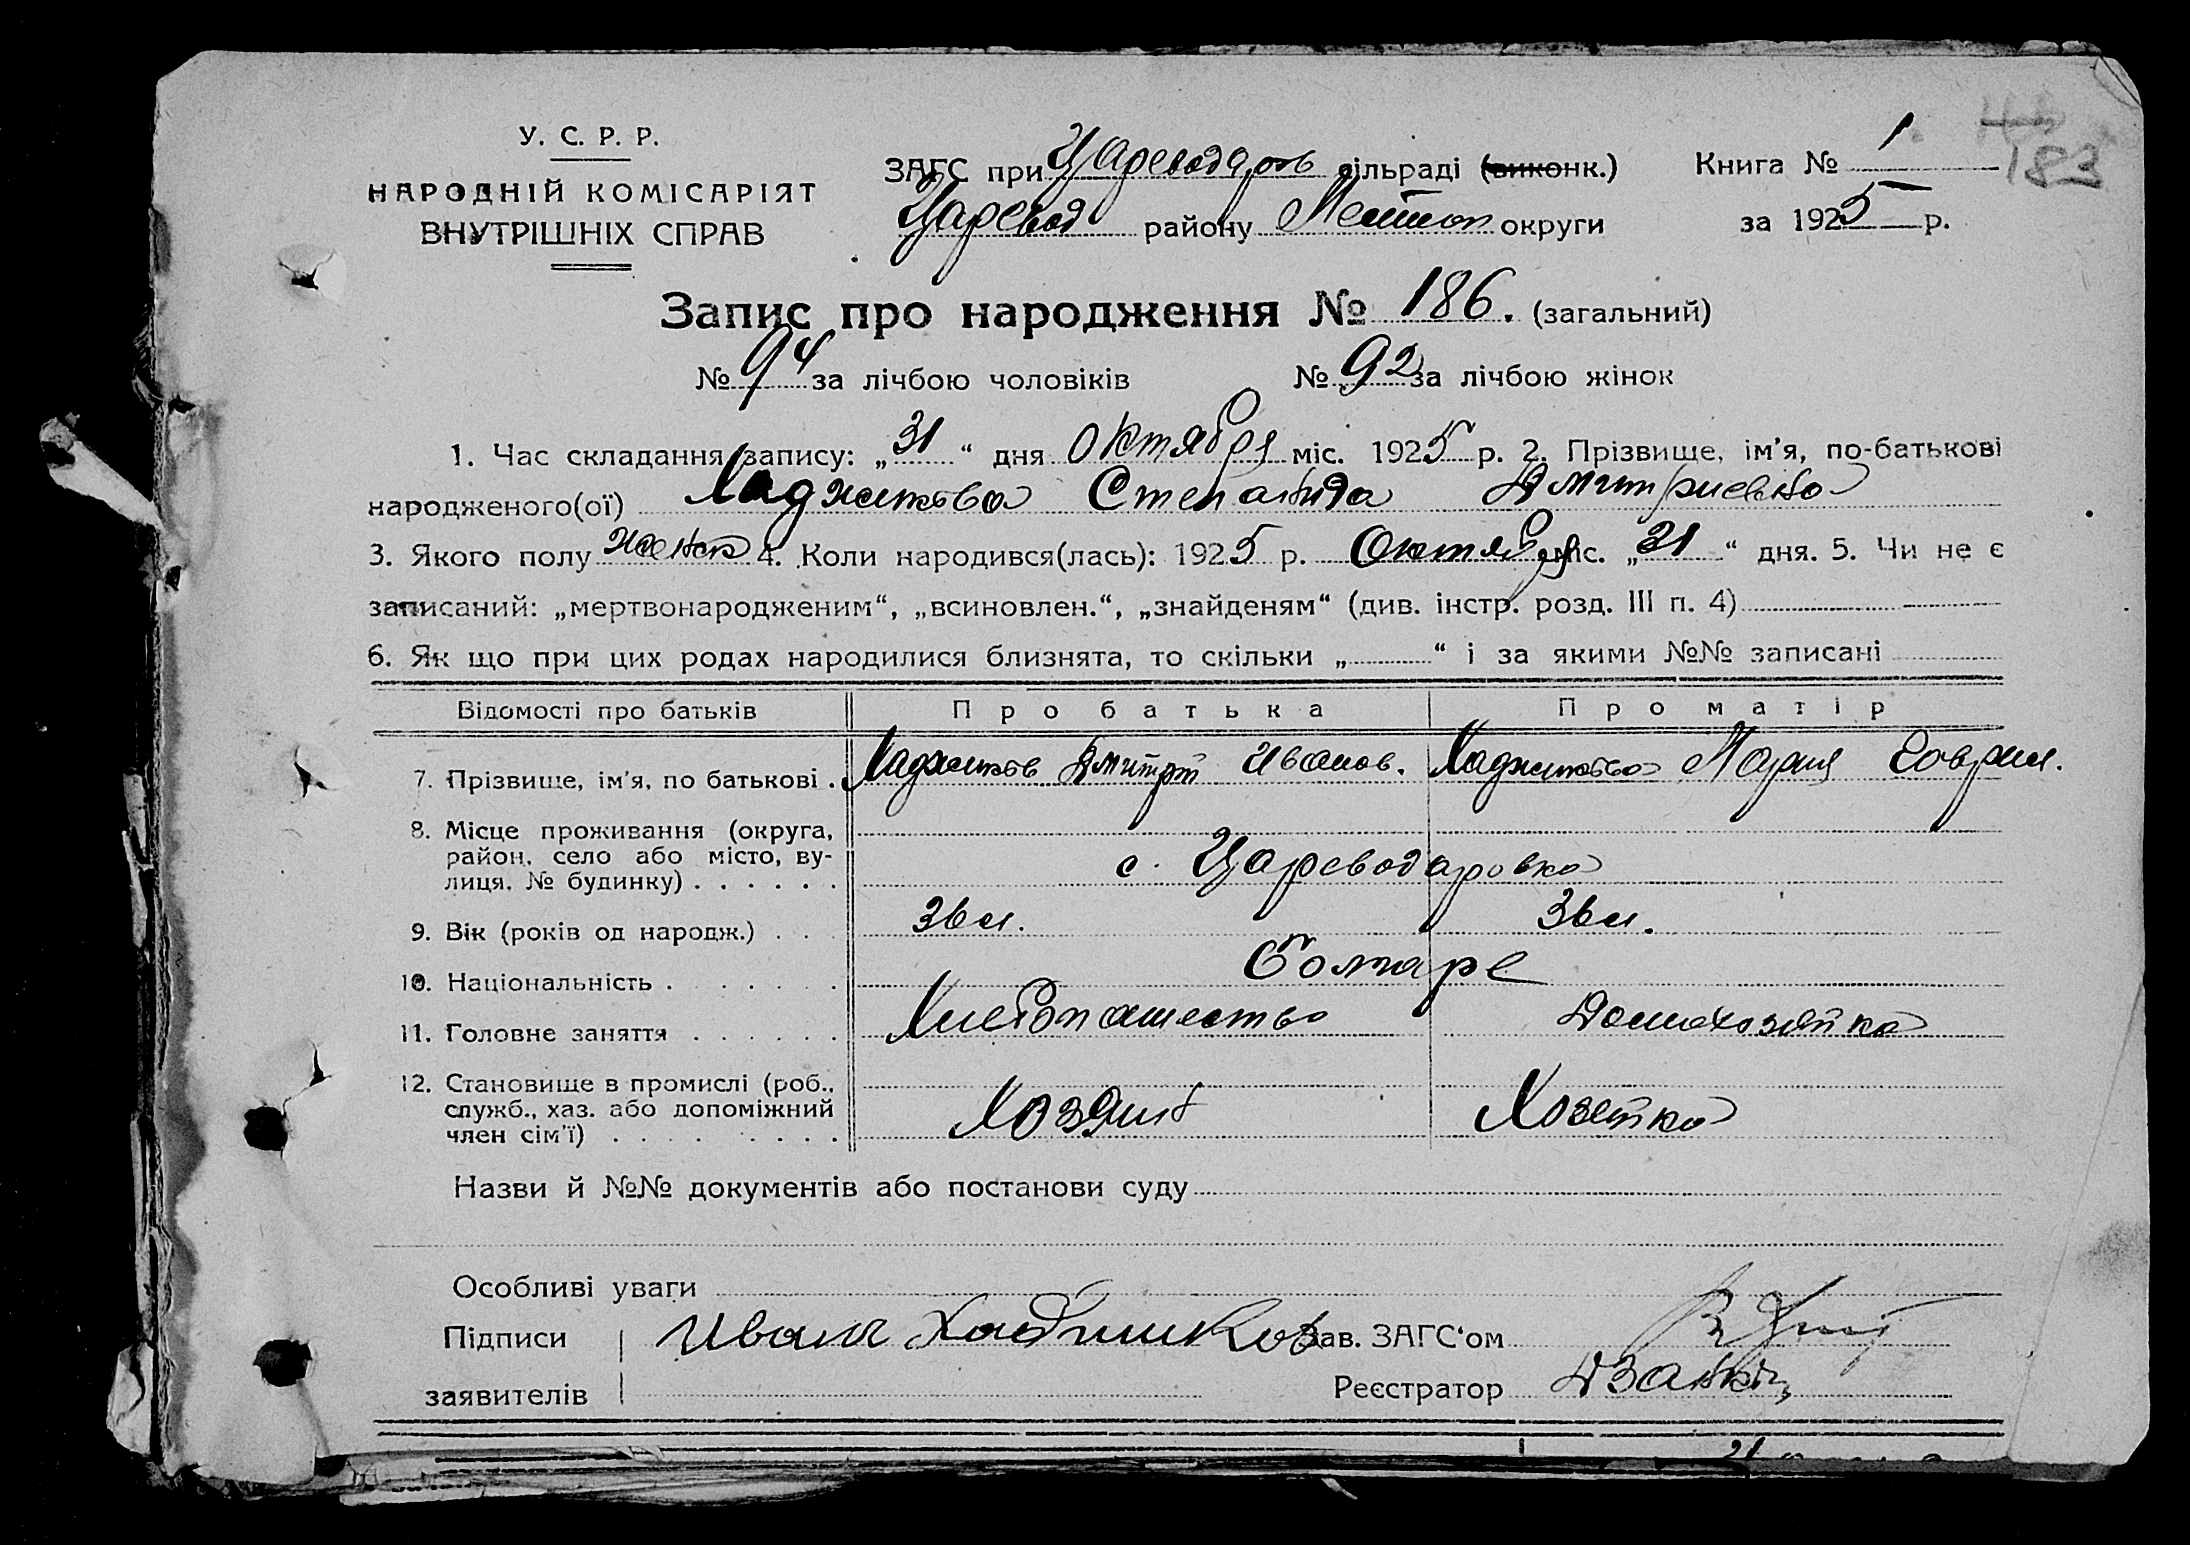 У. С. Р. Р.
НАРОДНІЙ КОМІСАРІЯТ
ВНУТРІШНІХ СПРАВ
ЗАГС при Цареводаров сільраді (виконк.)
Царевод району Мелитоп округи
Книга № 1
183
за 1925 р.
Запис про народження № 186. (загальний)
№ 94 за лічбою чоловіків № 92 за лічбою жінок
1. Час складання запису: „31“ дня Октября міс. 1925 р. 2. Прізвище, ім'я, по-батькові
народженого(ої) Хаджикова Степанида Дмитриевна
3. Якого полу женск 4. Коли народився(лась): 1925 р. Октября міс. „31“ дня. 5. Чи не є
записаний: „мертвонародженим“, „всиновлен.“, „знайденям“ (див. інстр. розд. III п. 4)
6. Як що при цих родах народилися близнята, то скільки „ “ і за якими №№ записані
Відомості про батьків Про батька Про матір
7. Прізвище, ім'я, по батькові . Хаджиков Дмитрий Иванов. Хаджикова Мария Гаврил.
8. Місце проживання (округа,
район, село або місто, ву-
лиця, № будинку) . . . . . . с. Цареводаровка
9. Вік (років од народж.) . . . 36 л. 36 л.
10. Національність . . . . . . Болгаре
11. Головне заняття . . . . . . Хлебопашество Домохозяйка
12. Становище в промислі (роб.,
служб., хаз. або допоміжний
член сім'ї) . . . . . . . Хозяин Хозяйка
Назви й №№ документів або постанови суду
Особливі уваги
Підписи Иван Хаджиков Зав. ЗАГС'ом
заявителів Реєстратор